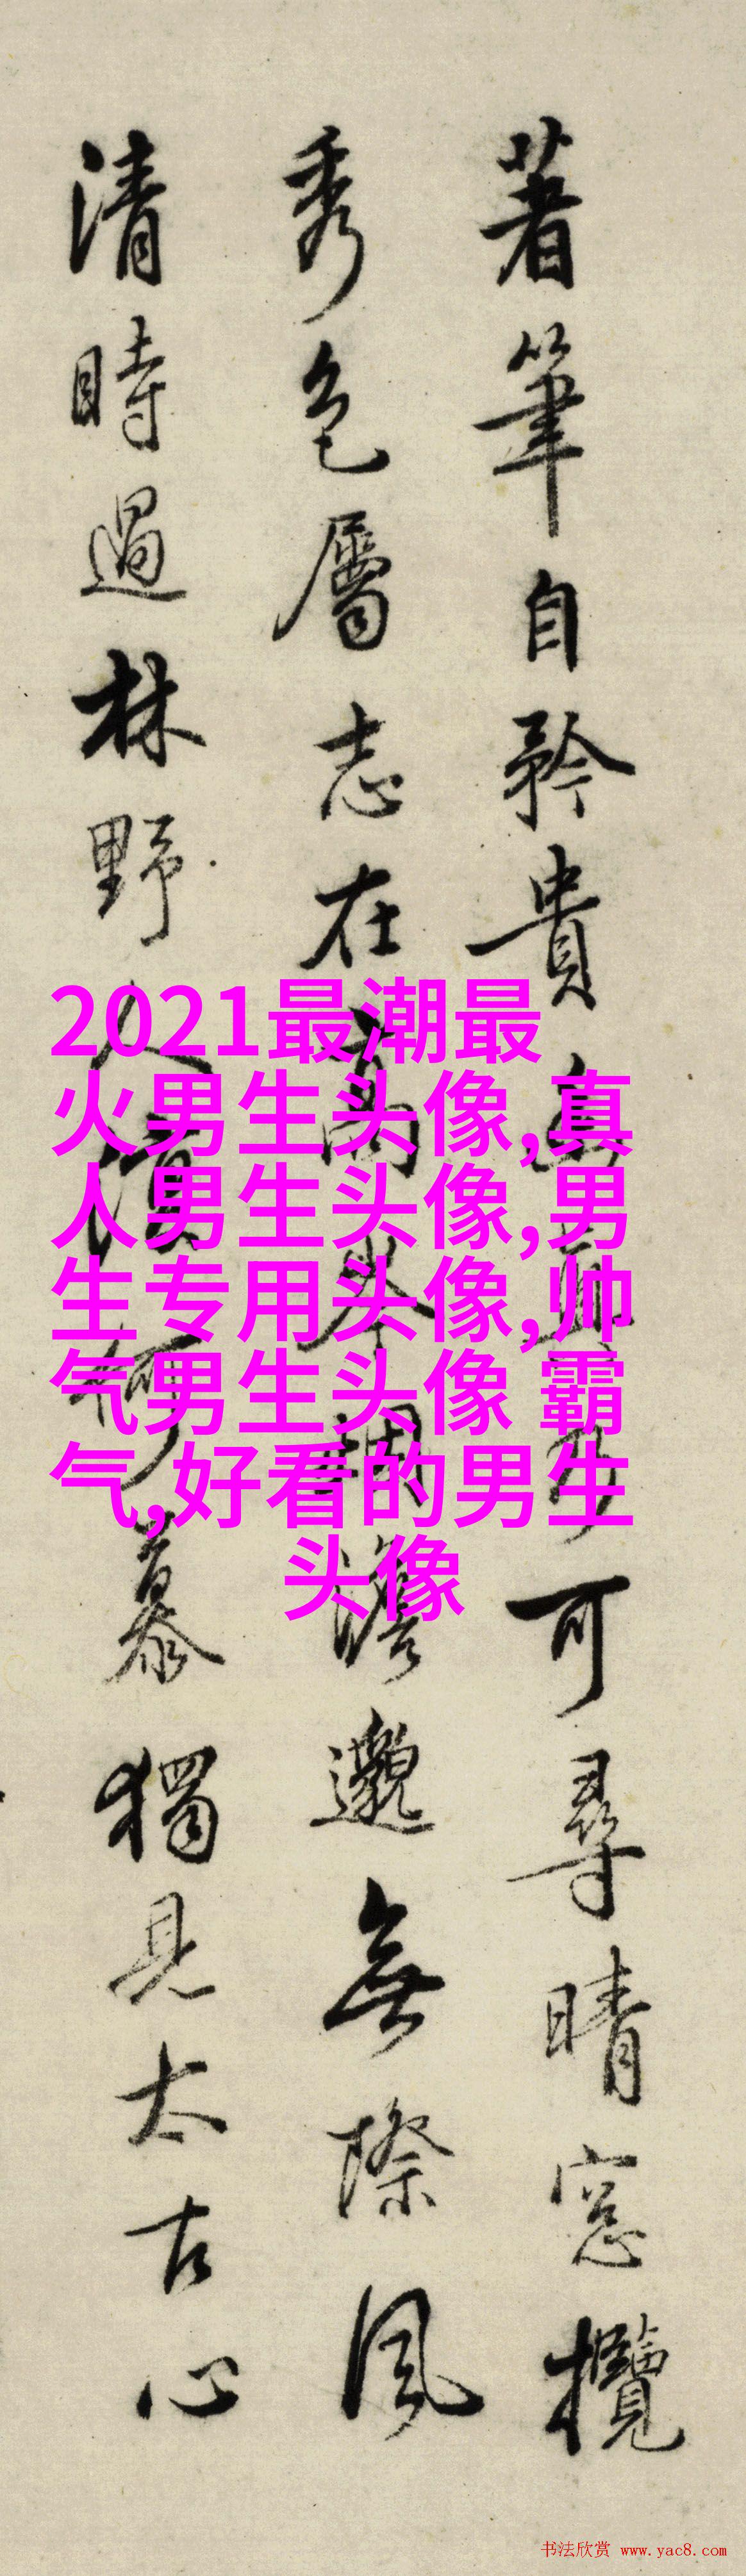 著筆自矜貴可尋晴窓攬
秀色屬志在高岑調澹邈無際風
清時過林野人何慕獨見太古心
2021最潮最
火男生头像,真
人男生头像,男
生专用头像,帅
气男生头像 霸
气,好看的男生
头像
书法欣赏 www.yac8.com